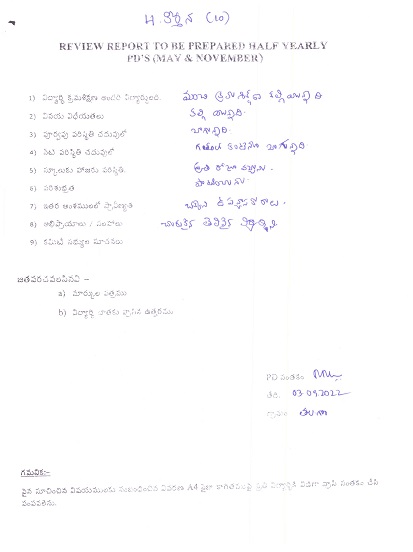 H. కీర్తన (10)
REVIEW REPORT TO BE PREPARED HALF YEARLY
PD'S (MAY & NOVEMBER)
1) విద్యార్థి క్రమశిక్షణ అందరి విద్యార్థులతో. మంచి క్రమశిక్షణ కల్గి యున్నది
2) వినయ విధేయతలు కల్గి యున్నది
3) పూర్వపు పరిస్థితి చదువులో బాగున్నది
4) నేటి పరిస్థితి చదువులో గతము కంటెను బాగున్నది
5) స్కూలుకు హాజరు పరిస్థితి ప్రతి రోజు
6) పరిశుభ్రత పాటించును
7) ఇతర అంశములలో ప్రావీణ్యత
8) అభిప్రాయాలు / ఫలితాలు తెలివైన
9) కమిటి సభ్యుల సూచనలు
జతపరచవలసినవి :-
a) మార్కుల పత్రము
b) విద్యార్థి దాతకు వ్రాసిన ఉత్తరము
PD సంతకం
తేది. 03.09.2022
గ్రామం
గమనిక:-
పైన సూచించిన విషయములను సంబంధించిన వివరణ A4 సైజు కాగితంపై ప్రతి విద్యార్థికి విడిగా వ్రాసి సంతకం చేసి
పంపవలెను.